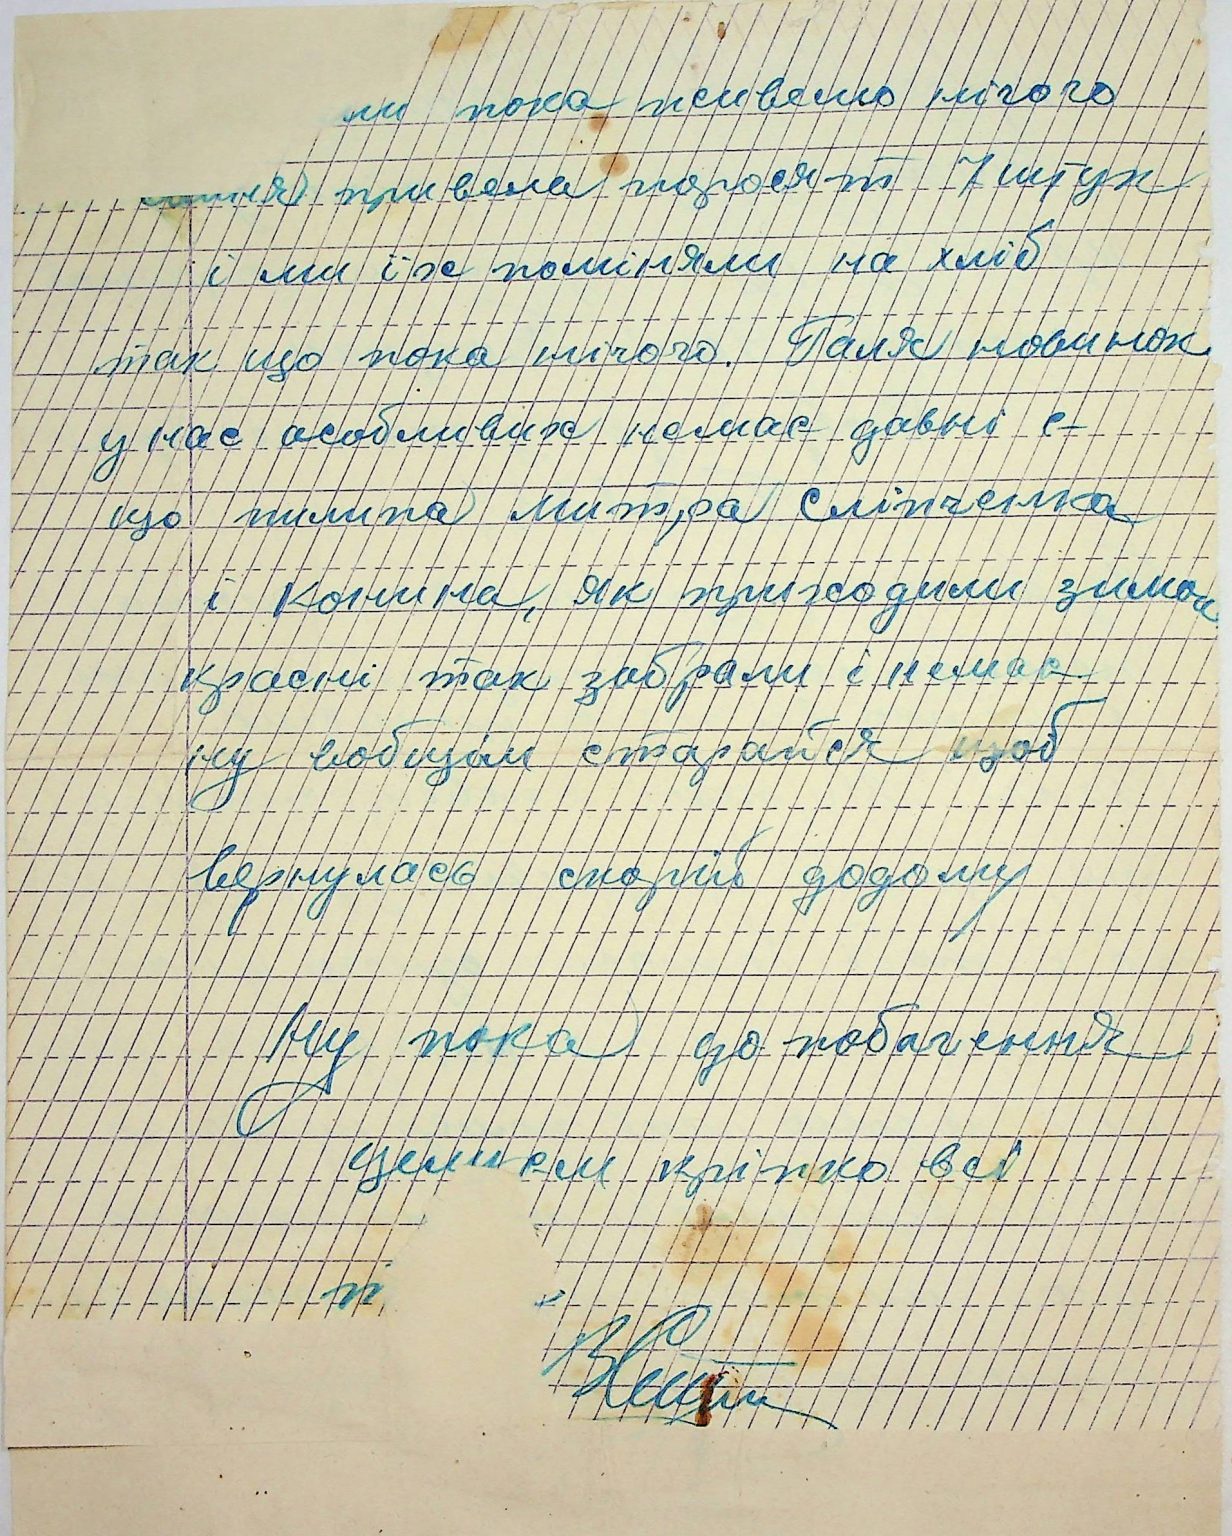 ми пока живемо нічого
привела поросят 7 штук
і ми їх поміняли на хліб
так що пока нічого. Галя новинок
у нас особливих немає давні є
що пилипа митра Сліпченка
і Конина, як приходили зимою
красні так забрали і немає
ну вобщім старайся щоб
вернулась скорій додому
Ну пока до побачення
целуєм кріпко всі